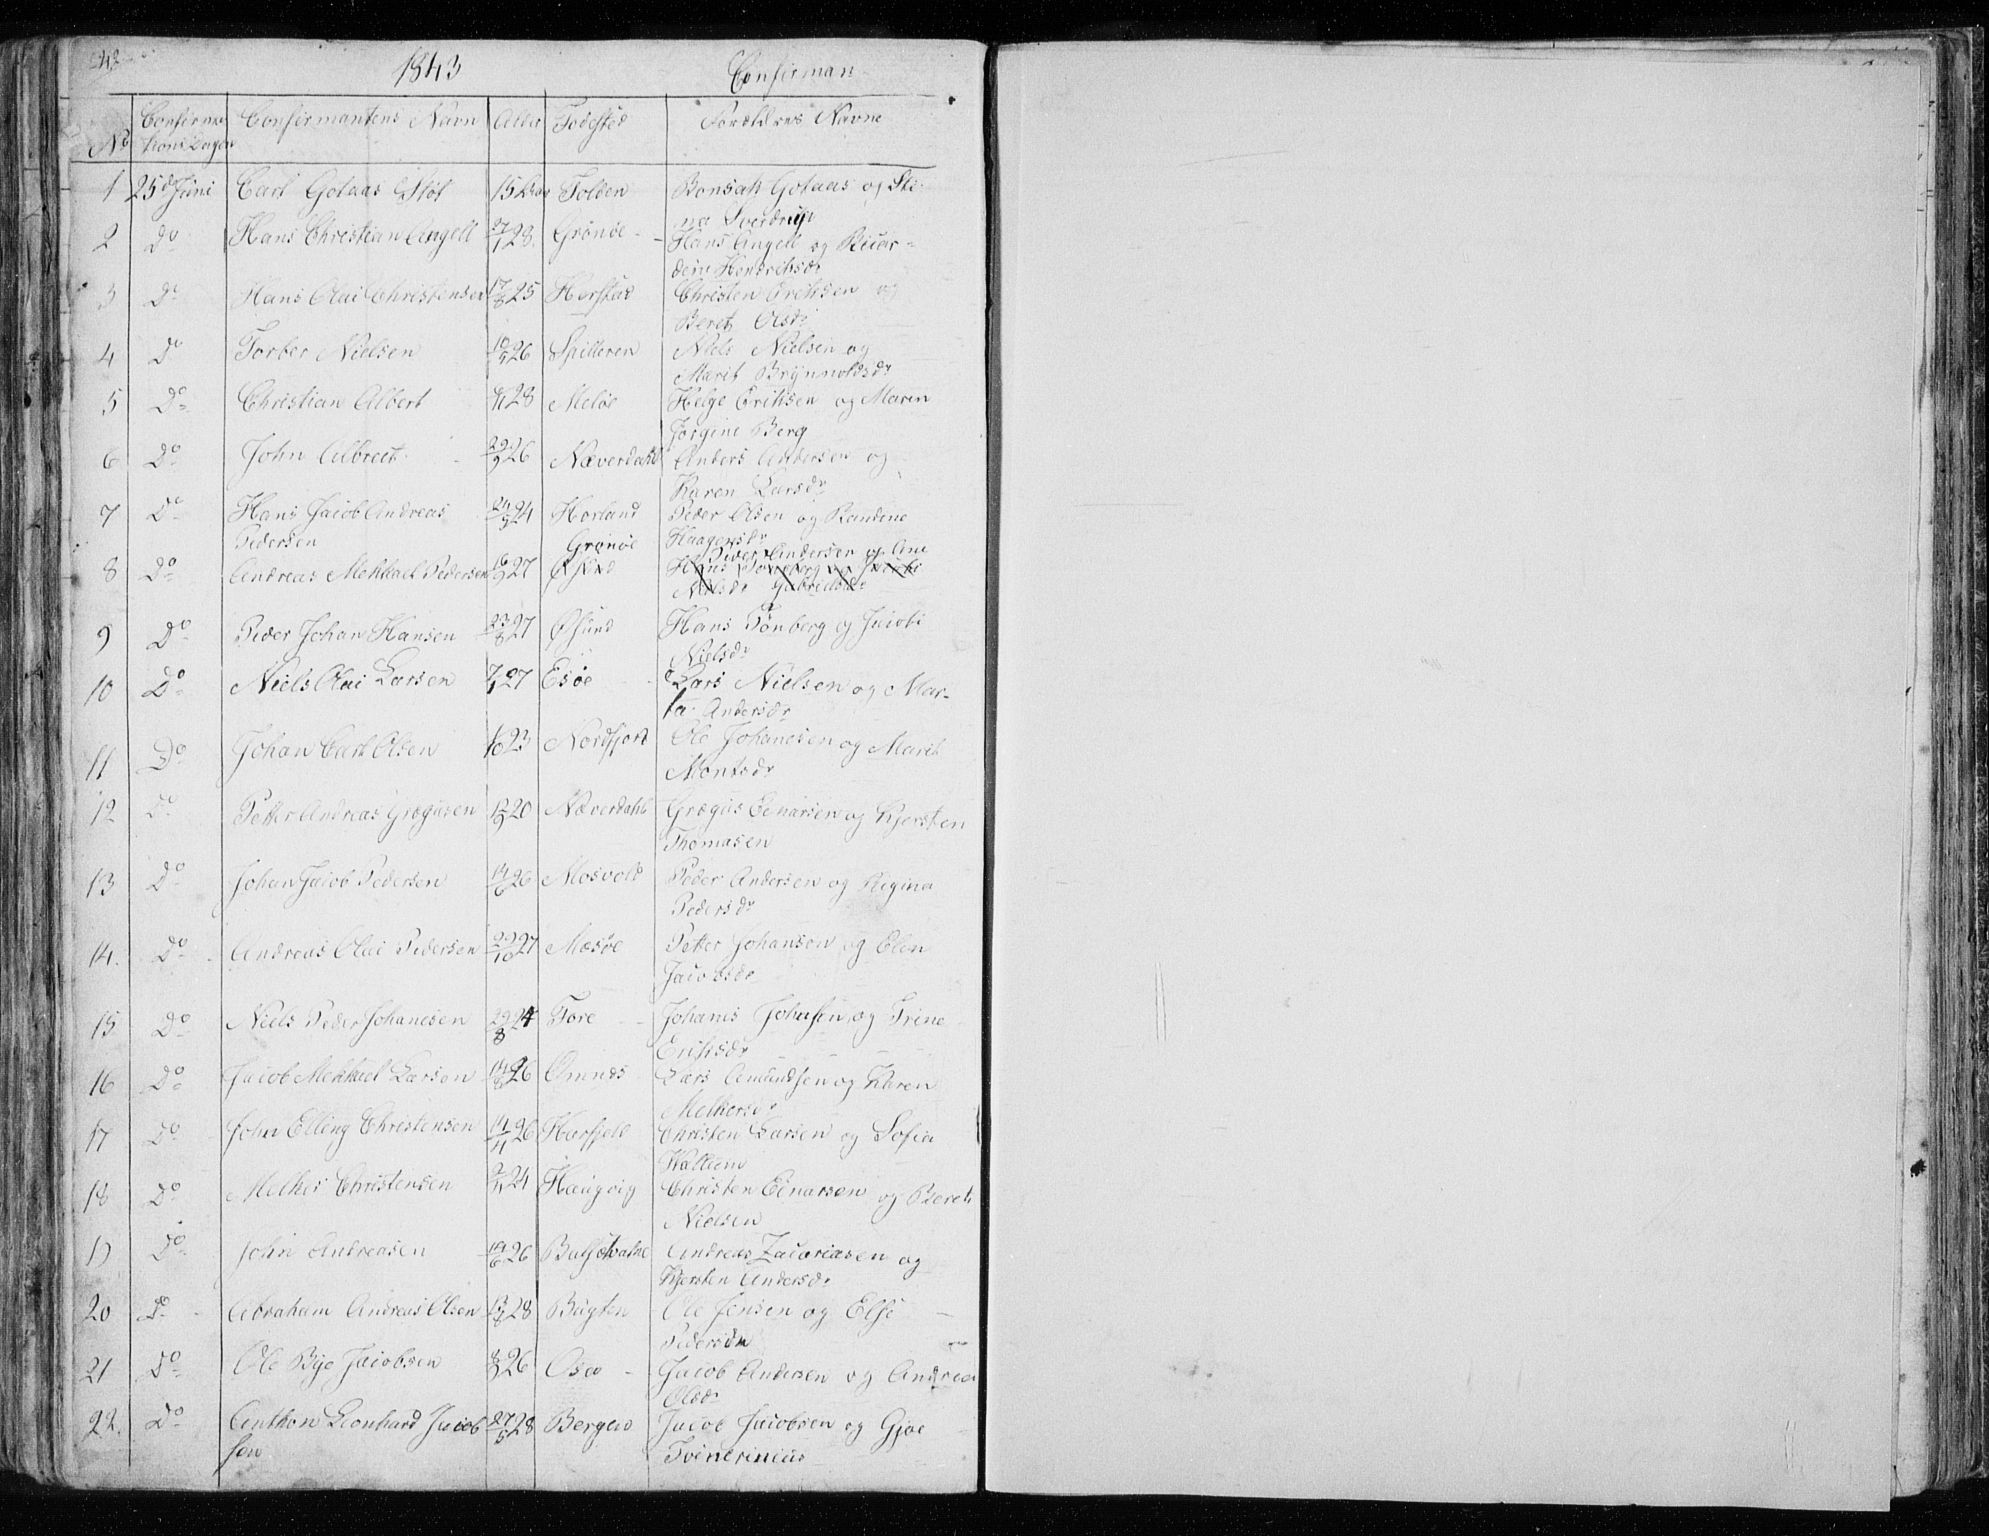 1843 Confirman
No Confirma- Confirmantens Navn Alder Fødested Forældres Navne
tions Dagen
1 25d Juni Carl Gotaas Støt 15 Aar Folden Bonsak Gotaas og Sti-
na Sverdrup
2 Do Hans Christian Angell 27/1 28 Grønøe Hans Angell og Ricar-
dine Hendriksdr
3 Do Hans Olai Christensen 17/8 25 Horstad Christen Eriksen og
Beret Olsdr
4 Do Torber Nielsen 26 Spilderen Niels Nielsen og
Marit Brynnoldsdr
5 Do Christian Albert 28 Meløe Helge Eriksen og Maren
Jørgine Berg
6 Do John Albret 29/9 26 Næverdahl Anders Andersen og
Karen Larsdr
7 Do Hans Jacob Andreas 24 Horland Peder Olsen og Randine
Pedersen Grønøe Haagensdr
Peder Andersen og Ane
8 Do Andreas Mekkael Pedersen 16/9 27 Øsund Hans Tønberg og Jacobi
Nielsdr Gabrielsdr
9 Do Peder Johan Hansen 23/8 27 Øsund Hans Tønberg og Jacobi
Nielsdr
10 Do Niels Olai Larsen 27 Esøe Lars Nielsen og Mar-
ta Andersdr
11 Do Johan Carl Olsen 23 Nordfjord Ole Johanesen og Marit
Montsdr
12 Do Petter Andreas Grægusen 20 Næverdahl Grægus Einarsen og Kjersten
Thomasen
13 Do Johan Jacob Pedersen 14/6 26 Mosvold Peder Andersen og Regina
Pedersdr
14. Do Andreas Olai Pedersen 29/10 27 Mæsøe Petter Johansen og Elen
Jacobsdr
15 Do Niels Peder Johanesen 29/8 24 Fore Johanis Johnsen og Trine
Eriksdr
16 Do Jacob Mekkael Larsen 26 Omnes Lars Amundsen og Karen
Melkersdr
17 Do John Elling Christensen 11/4 26 Horfjell Christen Larsen og Sofia
Wallum
18 Do Melkes Christensen 24 Haugvig Christen Einarsen og Beret
Nielsen
19 Do John Andreasen 26 Andreas Zacariasen og
Kjersten Andersdr
20 Do Abraham Andreas Olsen 28 Bugten Ole Jensen og Else
Pedersdr
21 Do Ole Bye Jacobsen 26 Osa Jacob Andersen og Andrea
Olsdr
22. Do Anthon Leonhard Jacob 27/5 28 Berget Jacob Jacobsen og Gjoe
sen